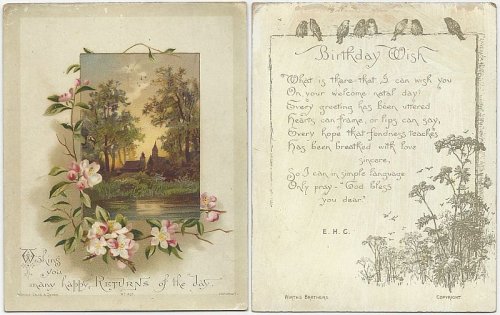 Wishing
you
many happy RETURNS of the day.
COPYRIGHT
Birthday Wish
"What is there that I can wish you
On your welcome natal day?
Every greeting has been uttered
Hearts can frame, or lips can say,
Every hope that fondness teaches
Has been breathed with love
sincere,
So I can in simple language
Only pray—"God bless
you dear."
E. H. G.
WIRTHS BROTHERS
COPYRIGHT